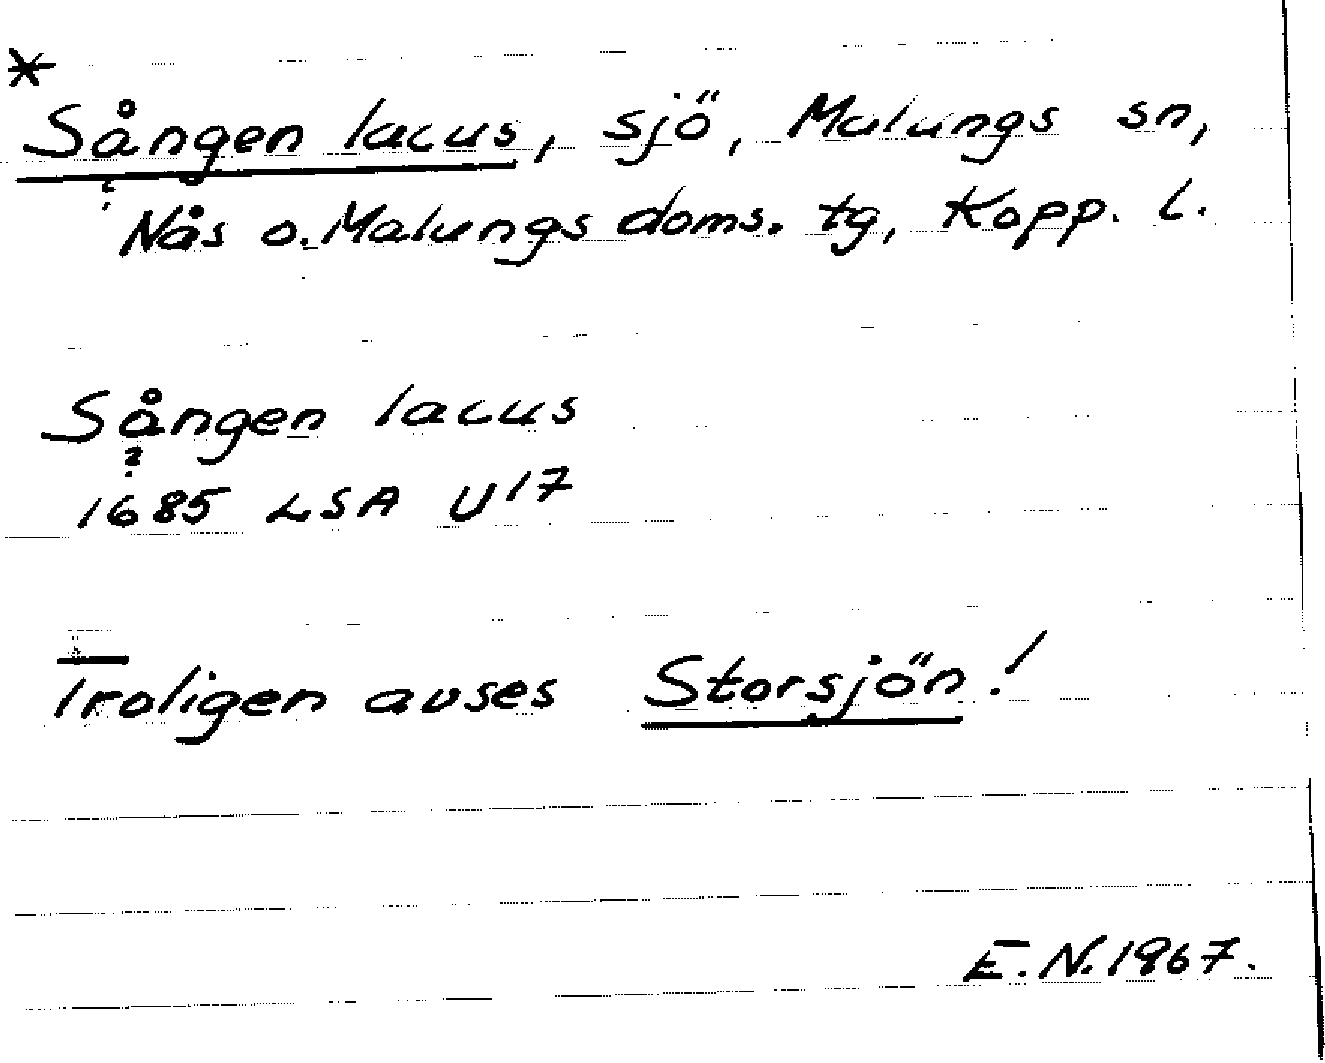 *
Sången lacus, sjö, Malungs sn,
?
Nås o. Malungs doms. tg, Kopp. l.
Sången lacus
?
1685 LSA U17
Troligen avses Storsjön!
E.N. 1967.